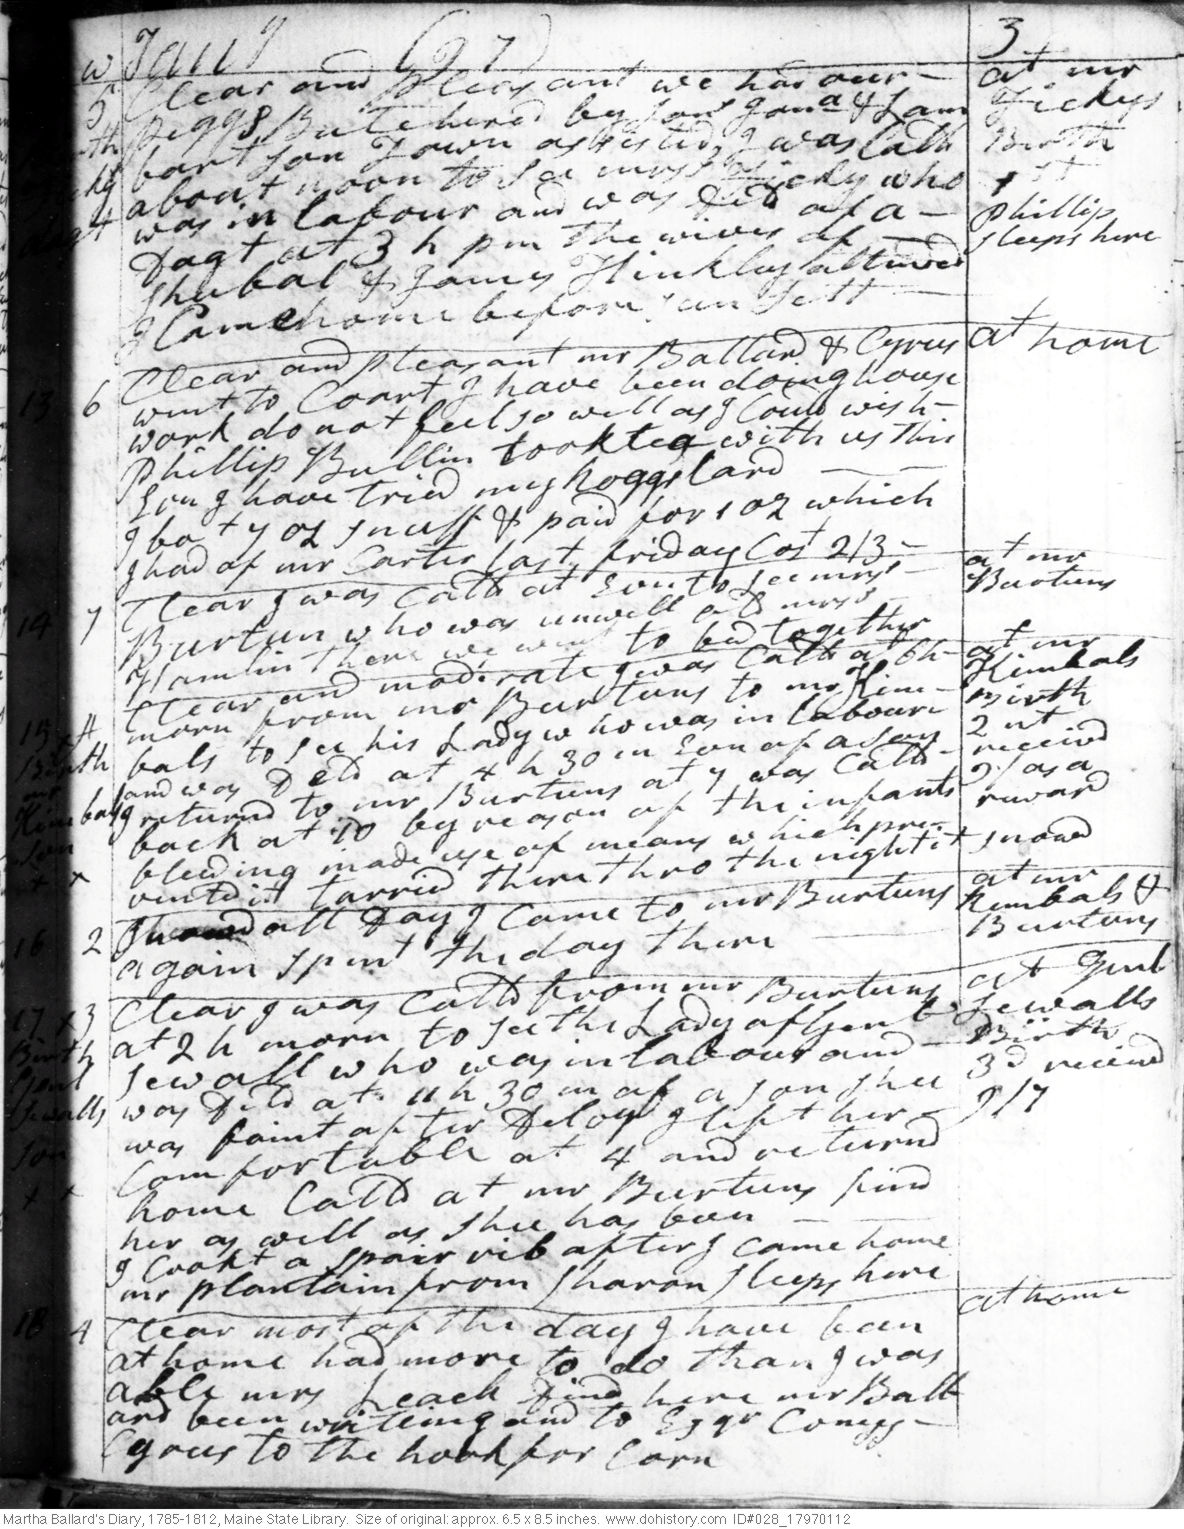 w Jany 97 3
5 Clear and Pleasant we had our at mr
peggs Butchered by Son Jona & Lam Hickys
bart Son Town assisted, I was Calld Birth
about noon to See mrs Hicky who 1st
was in labour and was Deld of a Phillip
Dagt at 3 h pm the wives of Sleeps here
Shubal & James Hinkley attended
I Came home before Sun Sett
13 6 Clear and pleasant mr Ballard & Cyrus at home
went to Coart I have been doing house
work do not feel so well as I Could wish
Phillip Bullin took tea with us this
Evn I have tried my hoggs lard
I bot 7 oz snuff & paid for 1 oz which
I had of mr Carter last friday Cost 2/3
14 7 Clear I was Calld at Evn to See mrs at mr
Burtun who was unwell old mrs Burtuns
Hamlin there we went to bed together
15 A Clear and moderate I was Calld at 6 h at mr
morn from mr Burtuns to mr Kim Kimbals
Birth bals to See his Lady who was in labour Birth
mr and was Deld at 4 h 30 m Evn of a Son 2nt
Kimbals I returnd to mr Burtuns at 7 was Calld received
son back at 10 by reason of the infants 9/ as a
x x bleeding made use of means which pre reward
ventd it tarried there thro the night it snowd
16 2 Snowd all Day I Came to mr Burtuns at mr
again Spent the day there Kimbals &
Burtuns
17 x 3 Clear I was Calld from mr Burtuns at Genl
Birth at 2 h morn to See the Lady of Genl Sewalls
Genl Sewall who was in labour and Birth
Sewalls was Deld at 11 h 30 m of a Son Shee 3d received
Son was faint after Delvy I left her 9/7
x x Comfortable at 4 and returnd
home Calld at mr Burtuns find
her as well as Shee has been
I Cookt a Spair rib after I came home
mr plantain from Sharon Sleeps here
18 4 Clear most of the day I have been at home
at home had more to do than I was
able mrs Leach here mr Ball
ard been writeing and to Esqr Comgs
Cyrus to the hook for Corn
Martha Ballard's Diary, 1785-1812, Maine State Library. Size of original: approx. 6.5 x 8.5 inches. www.dohistory.com ID#028_17970112